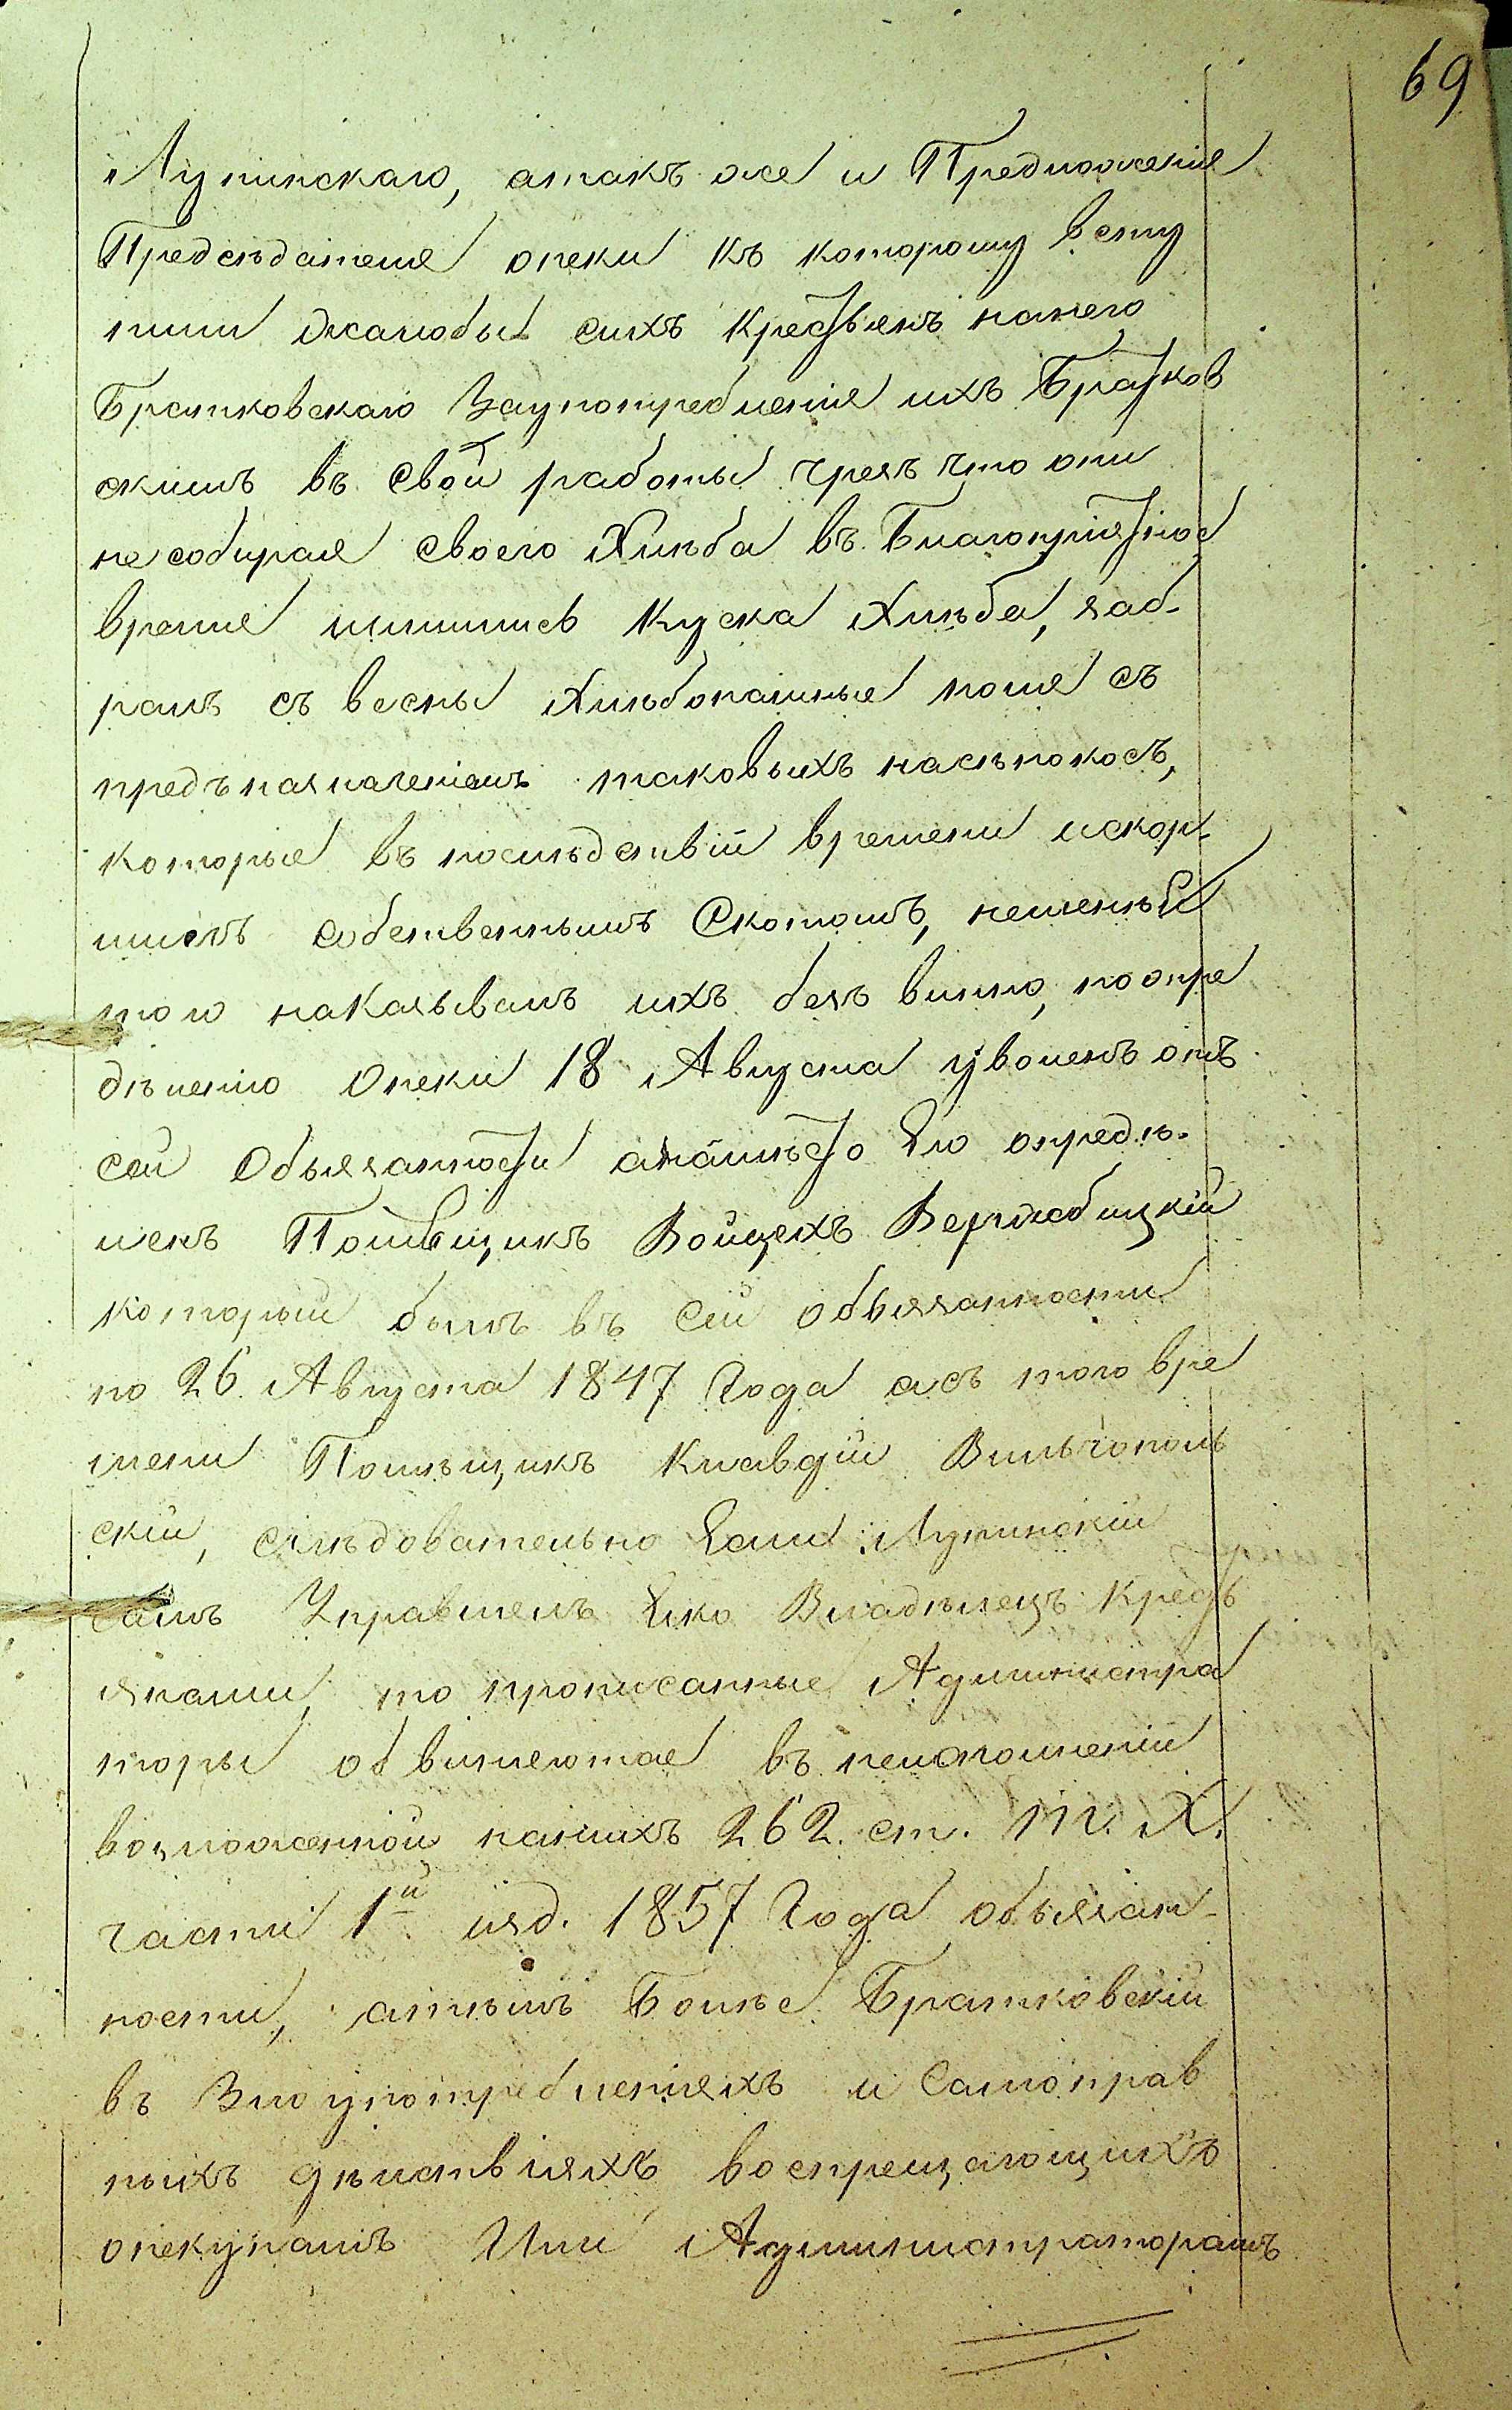 69
Лупинскаго, атакъ же и Предложенія
Предсѣдателя опеки къ которому всту
пили жалобы сихъ крестьянъ нанего
Братковскаго Заупотребленія ихъ Братков
скимъ въ свои работы чрезъ что они
не собирая своего Хлѣба въ Благопріятное
время лишились куска Хлѣба, заб-
ралъ съ весны Хлѣбопашныя поля съ
предъназначеніемъ таковыхъ насѣнокосъ,
которые въ послѣдствіи времени искор
милъ собственнымъ Скотомъ, неменѣй
того наказывалъ ихъ безъ винно, поопре
дѣленію Опеки 18 Августа уволенъ отъ
сей Обязанности анамѣсто Его опредѣ-
ленъ Помѣщикъ Войцехъ Вержбицкій
который былъ въ сей обязанности
по 26 Августа 1847 Года асъ того вре
мени Помѣщикъ Клавдій Вильгополь
скій, слѣдовательно Если Лупинскій
самъ Управлялъ Яко Владѣлецъ Кресть
янами, то прописанные Администра
торы обвиняются въ неисполненіи
возложенной нанихъ 262. ст. Т. X.
части 1й изд. 1857 Года обязан-
ности, атѣмъ Болѣе Братковскій
въ Злоупотребленіяхъ и Самоправ
ныхъ дѣиствіяхъ воспрещающихъ
опекунамъ Или Администраторамъ